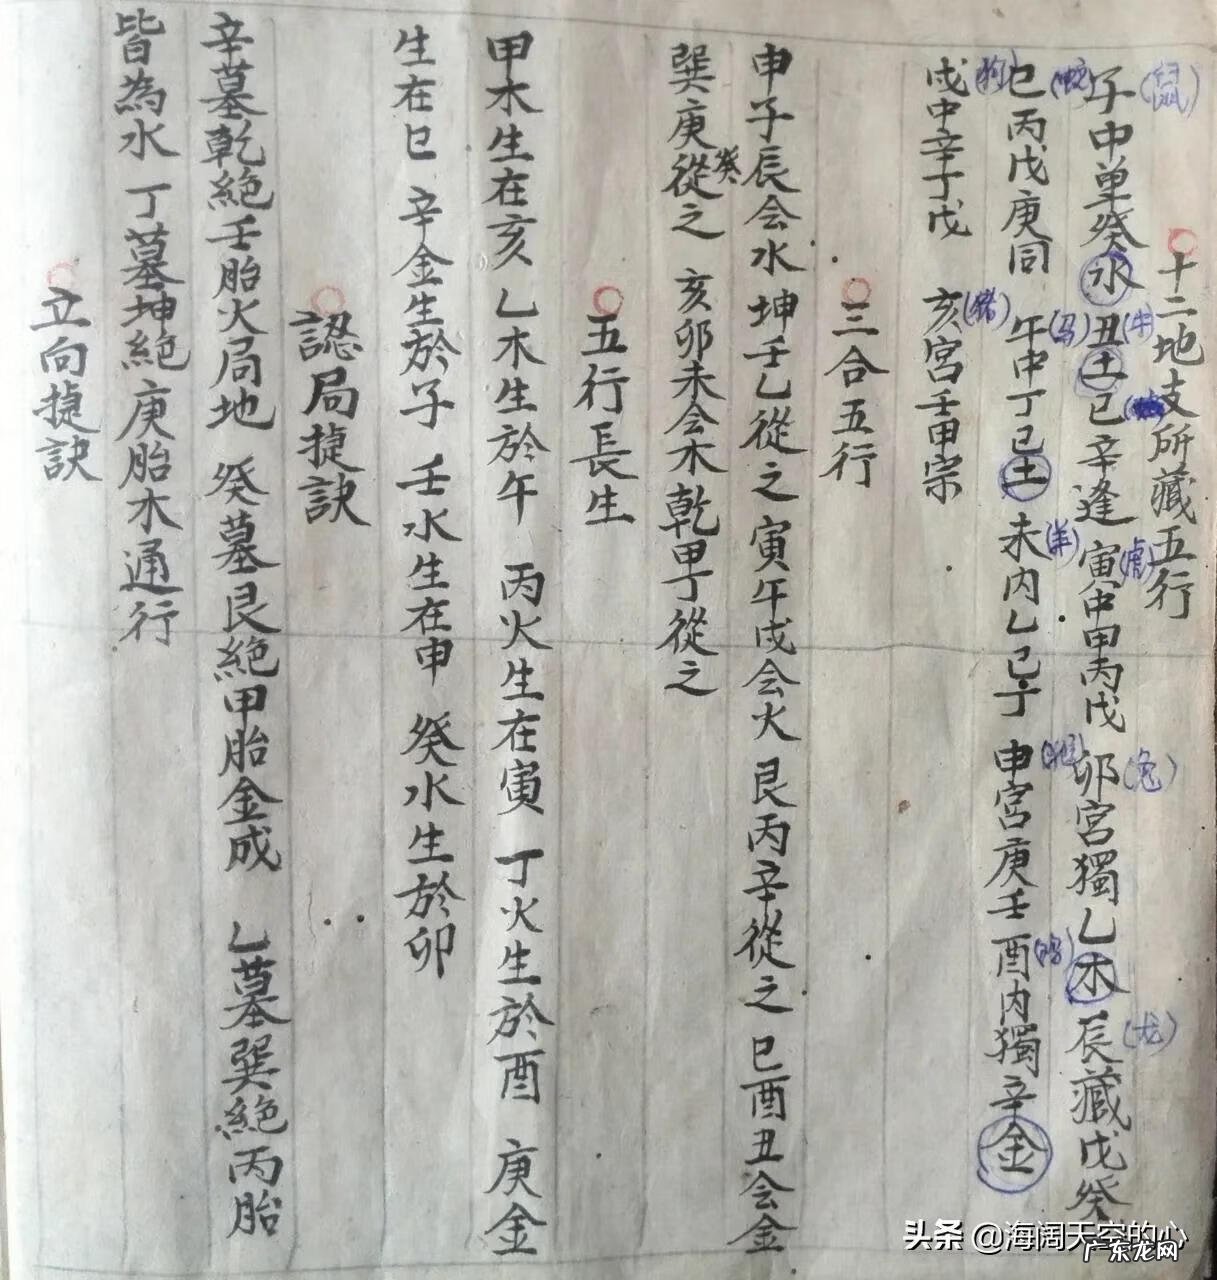 十二地支所藏五行
(鼠) (牛) (虎) (兔) (龙)
子中單癸水 丑土己辛逢 寅中甲丙戊 卯宮獨乙木 辰藏戊癸
(蛇) (马) (羊) (猴) (鸡)
巳丙戊庚同 午中丁己土 未内乙己丁 申宮庚壬 酉内獨辛金
(狗) (猪)
戌中辛丁戊 亥宮壬甲宗
三合五行
申子辰会水 坤壬乙從之 寅午戌会火 艮丙辛從之 巳酉丑会金
巽庚癸從之 亥卯未会木 乾甲丁從之
五行長生
甲木生在亥 乙木生於午 丙火生在寅 丁火生於酉 庚金
生在巳 辛金生於子 壬水生在申 癸水生於卯
認局捷訣
辛墓乾絕壬胎火局地 癸墓艮絕甲胎金成 乙墓巽絕丙胎
皆為水 丁墓坤絕庚胎木通行
立向捷訣
头条 @海阔天空的心
广东龙网